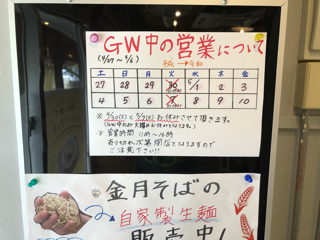 GW中の営業について
(4/27 ~ 5/6)
平成 → 令和
土 日 月 火 水 木 金
27 28 29 30 5/1 2 3
4 5 6 7 8 9 10
※ 4/30(火)と5/7(火)お休みさせて頂きます。
(GW中のみ火曜はお休みとなります。)
※ 営業時間 11時~16時
売り切れ次第閉店となりますので
ご注意下さい!!
金月そばの
自家製生麺
販売中!